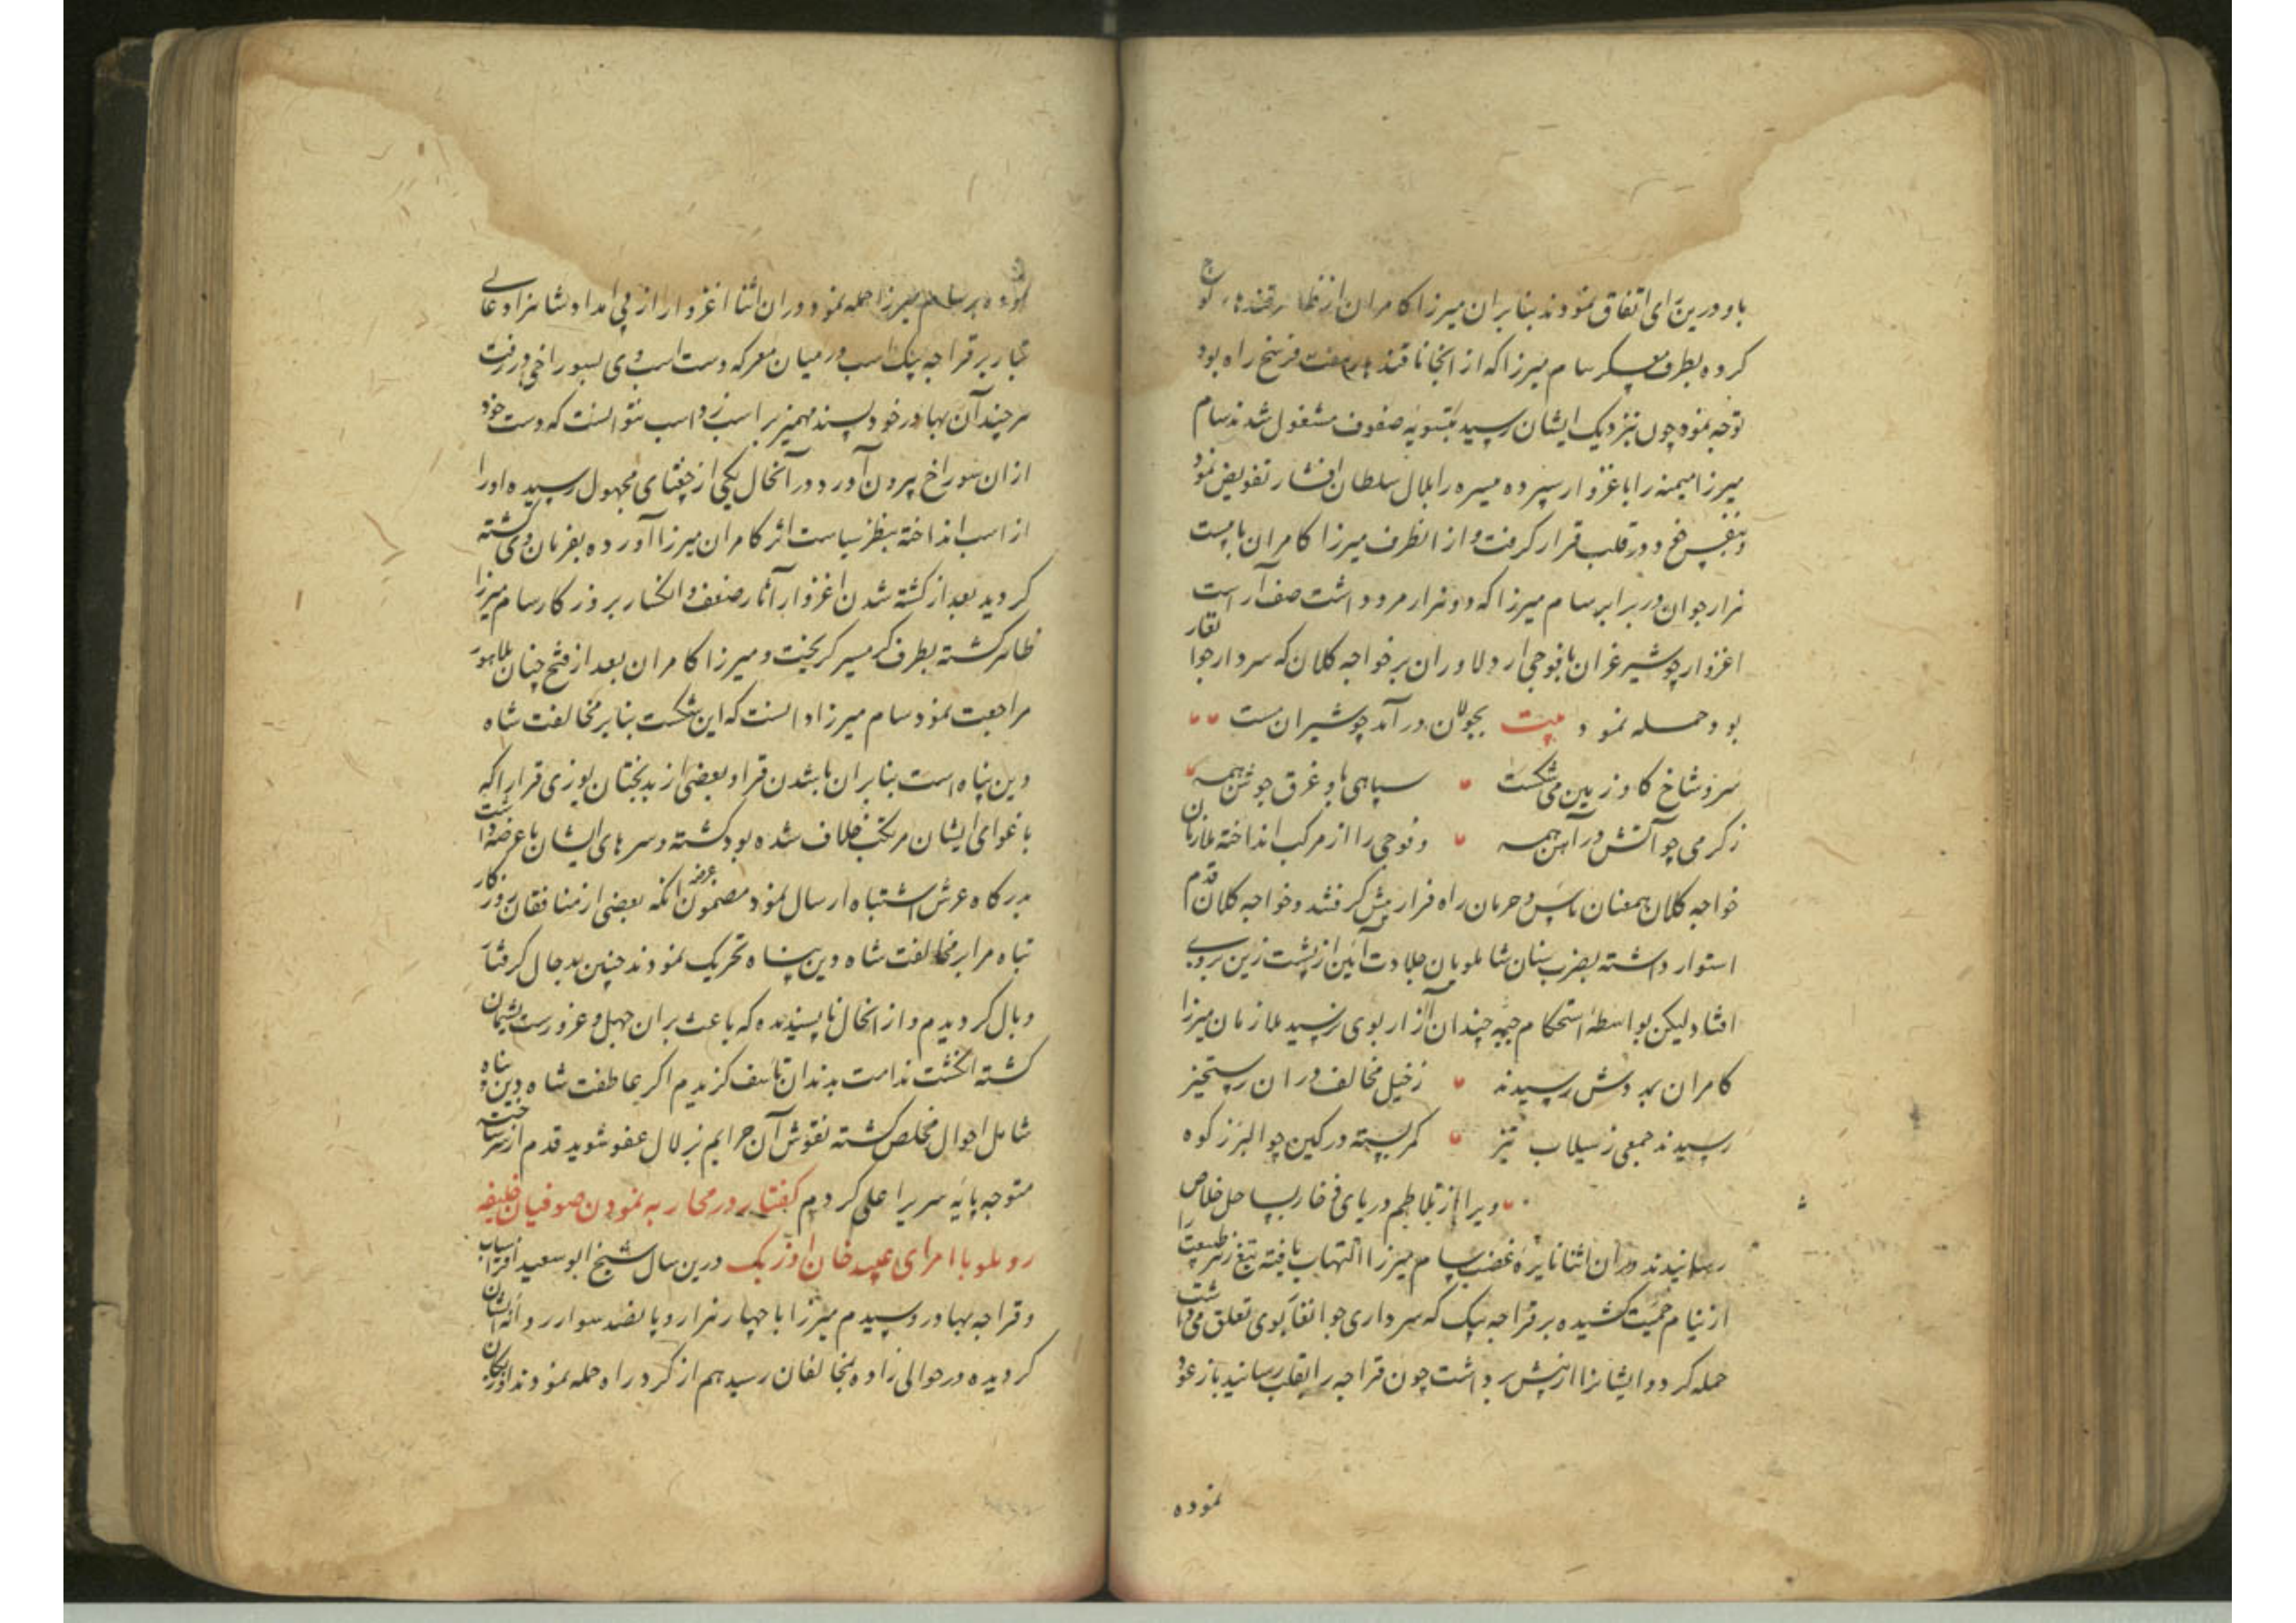 باو درین رای اتفاق نمودند بنابران میرزا کامران از ظاهر قندهار کوچ
کرده بطرف معسکر سام میرزا که از انجا تا قندهار هفت فرسخ راه بود
توجه نموده چون بنزدیک ایشان رسید بتسویه صفوف مشغول شدند سام
میرزا میمنه را باغزوار سپرده میسره را بلال سلطان افشار تفویض نمود
و بنفس خود در قلب قرار کرفت و از انطرف میرزا کامران با بیست
هزار جوان در برابر سام میرزا که دو هزار مرد داشت صف آراست
اغزوار چو شیر غران با فوجی از دلاوران بر خواجه کلان که سردار جوانغار
بود حمله نمود بیت بجولان در آمد چو شیران مست
سر و شاخ کاو زمین می شکست سپاهی باو غرق جوشن همه
ز کرمی چو آتش در آهن همه و فوجی را از مرکب انداخته ملازمان
خواجه کلان همعنان یاس و حرمان راه فرار پیش کرفتند و خواجه کلان قدم
استوار داشته بضرب سنان شاملویان جلادت آیین از پشت زین بروی
افتاد لیکن بواسطه استحکام جبه چندان آزار بوی نرسید ملازمان میرزا
کامران بمددش رسیدند ز خیل مخالف در ان رستخیز
رسیدند جمعی ز سیلاب تیز کمر بسته در کین چو البرز کوه
ویرا از تلاطم دریای ذخار بساحل خلاص
رسانیدند در ان اثنا نایره غضب سام میرزا التهاب یافته تیغ زمرد طبیعت را
از نیام حمیت کشیده بر قراجه بیک که سرداری جوانغار بوی تعلق می داشت
حمله کرد و ایشانرا از پیش برداشت چون قراجه را بقلب رسانید باز عود
نموده
نموده بر سام میرزا حمله نمود در ان اثنا اغزوار از پی امداد شاهزاد عالی
تبار بر قراجه بیک اسب در میان معرکه دست اسب وی بسوراخی در رفت
هر چند آن بهادر خود پسند مهمیز بر اسب زد اسب نتوانست که دست خود
از ان سوراخ بیرون آورد در آنحال یکی از چغتای مجهول رسیده اورا
از اسب انداخته بنظر سیاست اثر کامران میرزا آورده بفرمان وی کشته
کردید بعد از کشته شدن اغزوار آثار ضعف و انکسار بر روز کار سام میرزا
ظاهر کشته بطرف کرمسیر کریخت و میرزا کامران بعد از فتح چنان بلاهور
مراجعت نمود سام میرزا دانست که این شکست بنابر مخالفت شاه
دین پناه است بنابران باشدن قرا و بعضی از بدبختان بوزی قرار را که
باغوای ایشان مرتکب خلاف شده بود کشته و سرهای ایشان با عرضه داشت
بدرکاه عرش اشتباه ارسال نمود مضمون عرضه انکه بعضی از منافقان روزکار
تباه مرا بر مخالفت شاه دین پناه تحریک نمودند چنین بدحال کرفتار
وبال کردیدم و از انحال ناپسندیده که باعث بران جهل و غرورست پشیمان
کشته انکشت ندامت بدندان تاسف کزیدم اکر عاطفت شاه دین پناه
شامل احوال مخلص کشته نقوش آن جرایم بزلال عفو شوید قدم از سر ساخته
متوجه پایه سریر اعلی کردم کفتار در محاربه نمودن صوفیان خلیفه
روملو با امرای عبید خان اوزبک درین سال شیخ ابو سعید افراسیاب
و قراجه بهادر و سیدم میرزا با چهار هزار و پانصد سوار روانه
کردیده در حوالی زاوه بمخالفان رسید هم از کرد راه حمله نمودند اوزبکان